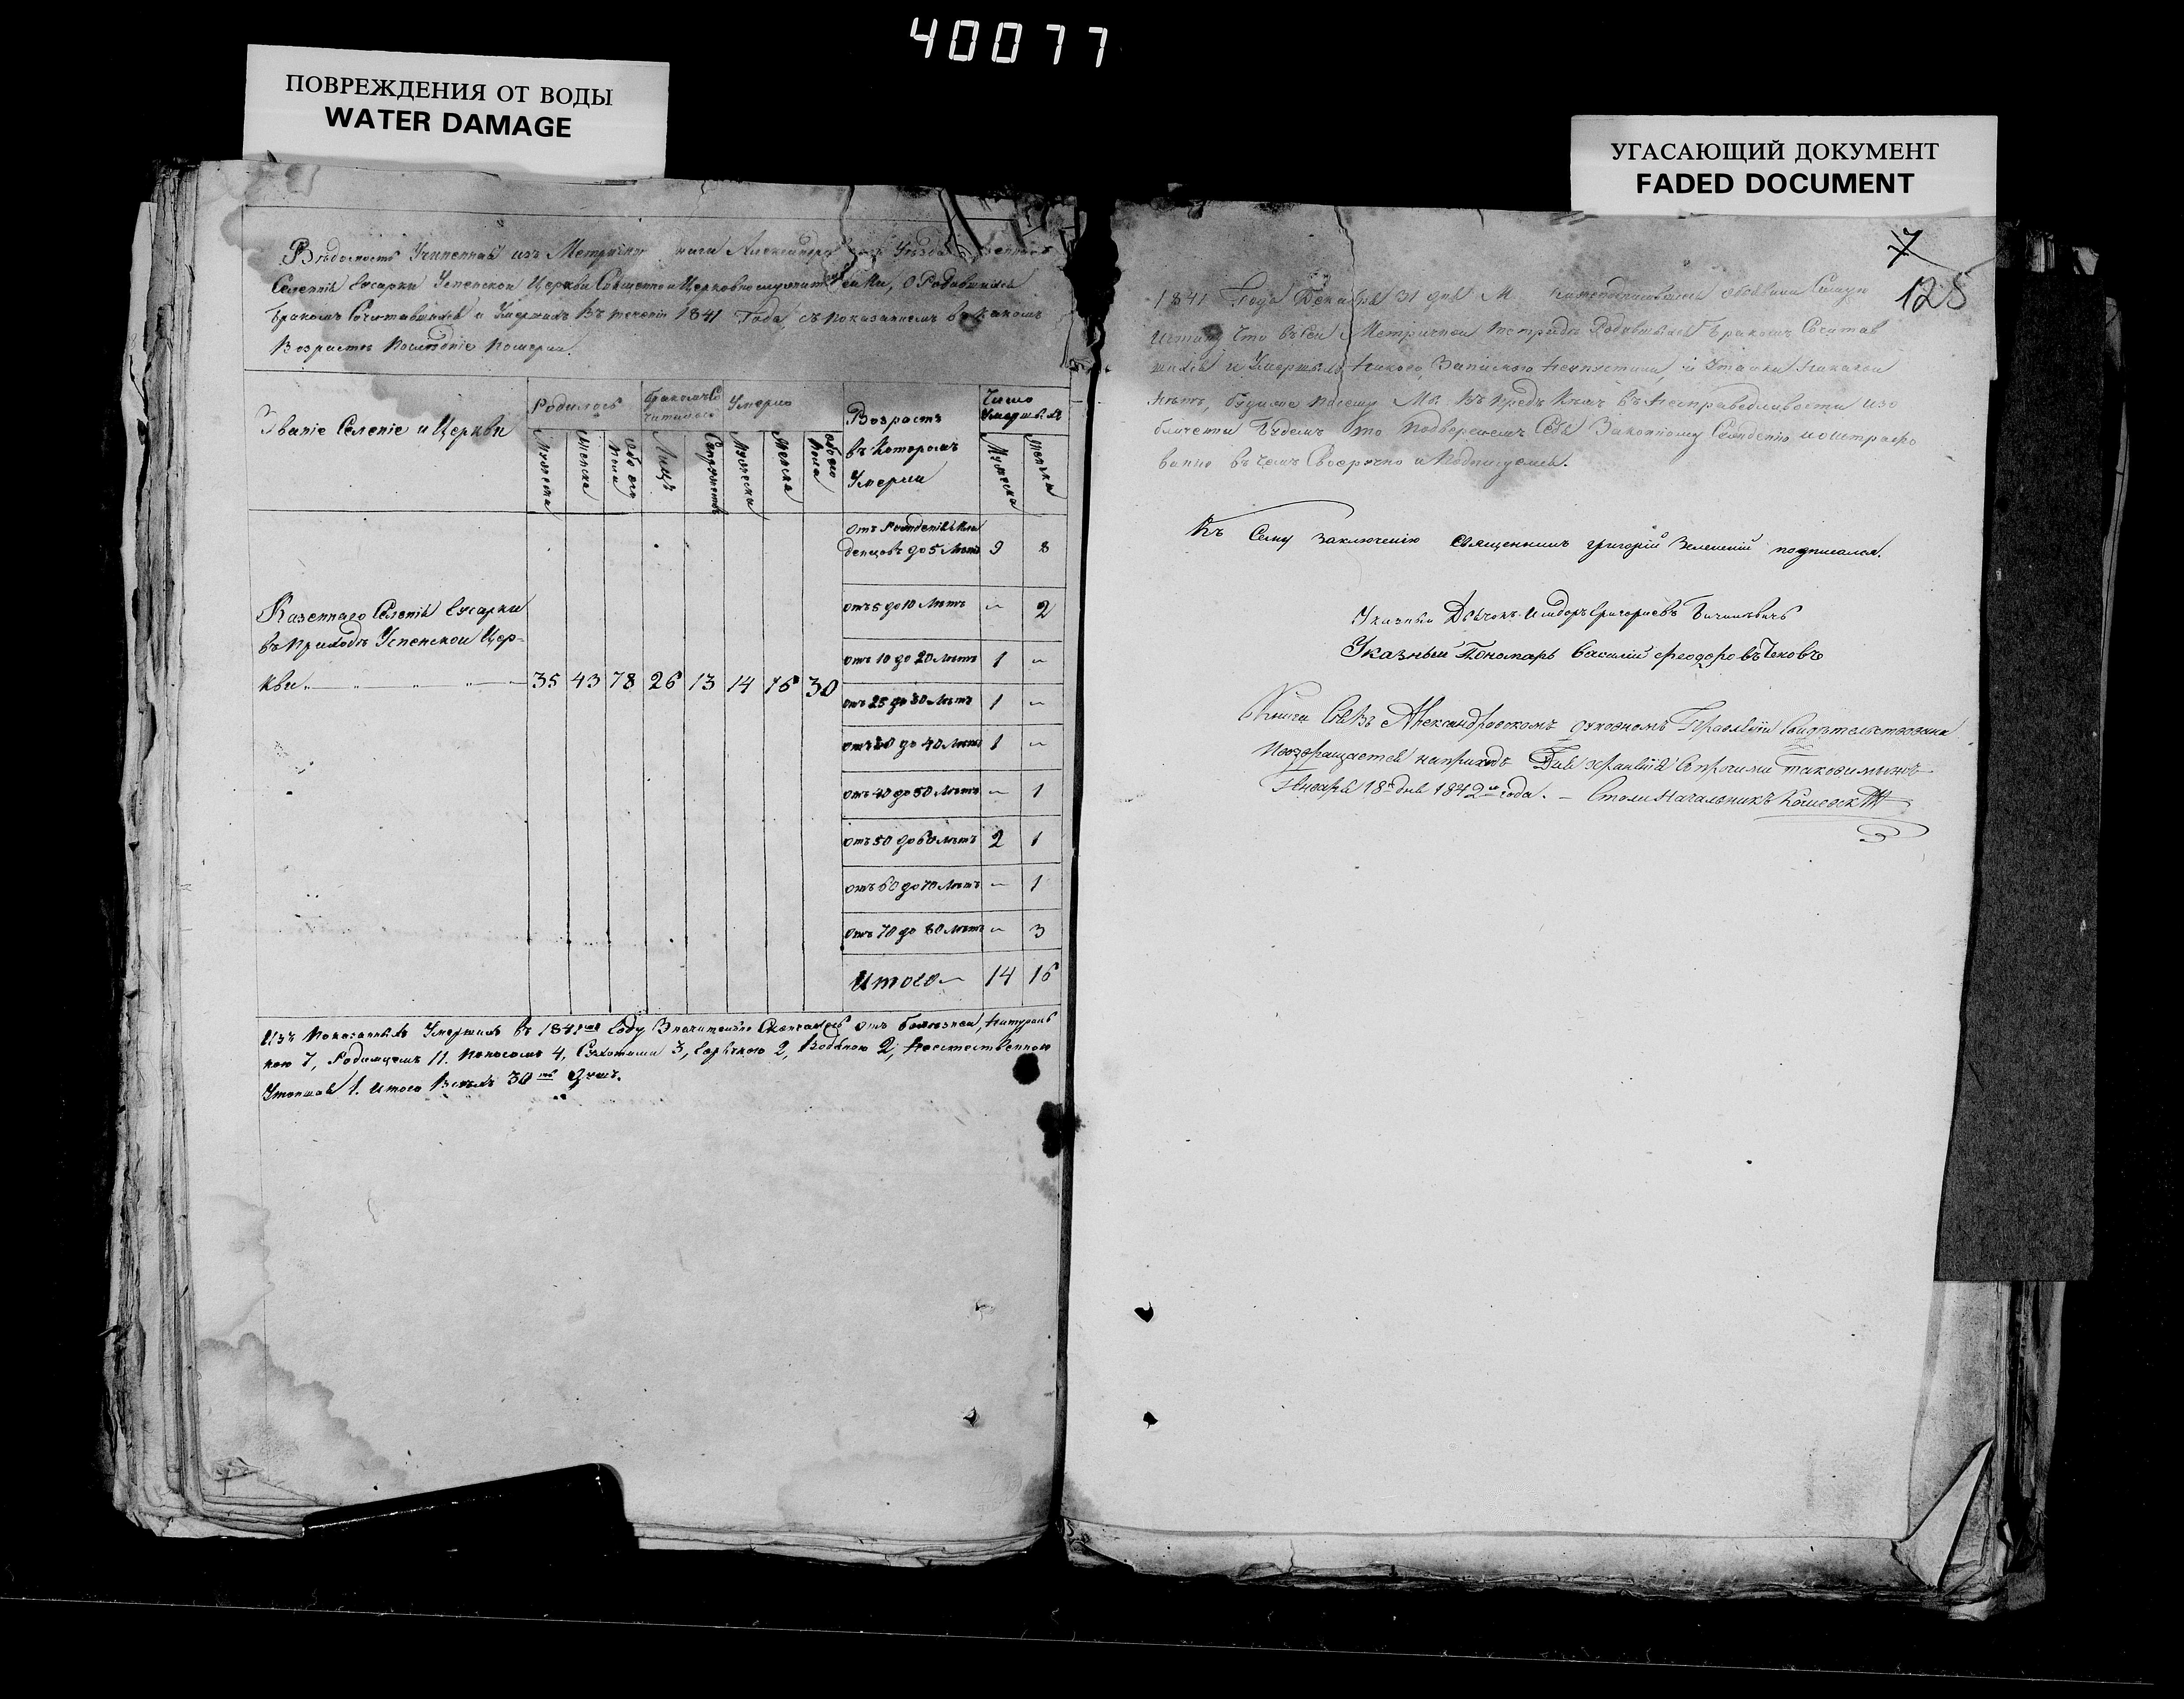 40077
ПОВРЕЖДЕНИЯ ОТ ВОДЫ
WATER DAMAGE
УГАСАЮЩИЙ ДОКУМЕНТ
FADED DOCUMENT
Вѣдомость Учиненная изъ Метричной Уѣзда
Селенія Гусарки Успенской Церкви Священно и Церковнослужителями, о Родившихся
Бракомъ Сочитавшихся и Умершихъ Въ теченіи 1841 Года, съ показаніемъ въ какомъ
Возрастѣ Послѣдніе Померли.
Званіе Селеніе и Церкви
Родилось
Бракомъ Со
читалось
Умерло
Возрастъ
въ Которомъ
Умерли
Число
Умершихъ
Мужеска
Женска
Обоего
Пола
Лицъ
Супружествъ
Мужеска
Женска
Обоего
Пола
Мужеска
Женска
отъ Рожденія Мла
денцовъ до 5 Лѣтъ 9 8
отъ 5 до 10 Лѣтъ — 2
отъ 10 до 20 Лѣтъ 1 —
отъ 25 до 30 Лѣтъ 1 —
отъ 30 до 40 Лѣтъ 1 —
отъ 40 до 50 Лѣтъ — 1
отъ 50 до 60 Лѣтъ 2 1
отъ 60 до 70 Лѣтъ — 1
отъ 70 до 80 Лѣтъ — 3
Итого — 14 16
Казеннаго Селенія Гусарки
въ Приходѣ Успенской Цер-
кви 35 43 78 26 13 14 16 30
Изъ Показанныхъ Умершихъ въ 1841мъ Году Значительно Скончалось отъ болѣзней, Натураль
ною 7, Родимцемъ 11. Поносомъ 4, Сухотами 3, Горячкою 2, Водяною 2, Неестественною
Утопшая 1. Итого Всѣхъ 30ть Душъ.
7
125
1841 Года Декабря 31 дня Мы Нижеподписавшіеся объявили Самую
Истину Что въ сей Метричной Тетради Родившихся Бракомъ Сочитав
шихся и Умершихъ Никого Запискою Непустили, и Утайки Никакой
Нѣтъ, Будиже Посему Мы Въпредь Кѣмъ въ Несправедливости изо
бличены Будемъ То Подвергаемъ Себя Законному Сужденію и оштрафо
ванію въ Чемъ Своеручно и Подписуемся.
Къ Сему заключенію священникъ Григорій Зеленскій подписался.
Указный Дьячокъ Исидоръ Григорьевъ
Указный Пономарь Василій Феодоровъ Чеховъ
Книга Сія Въ Александровскомъ духовномъ Правленіи Свидѣтельствована
И возвращается на приходъ Для храненія съ прочими таковымижъ
Января 18 дня 1842го года. — Столоначальникъ